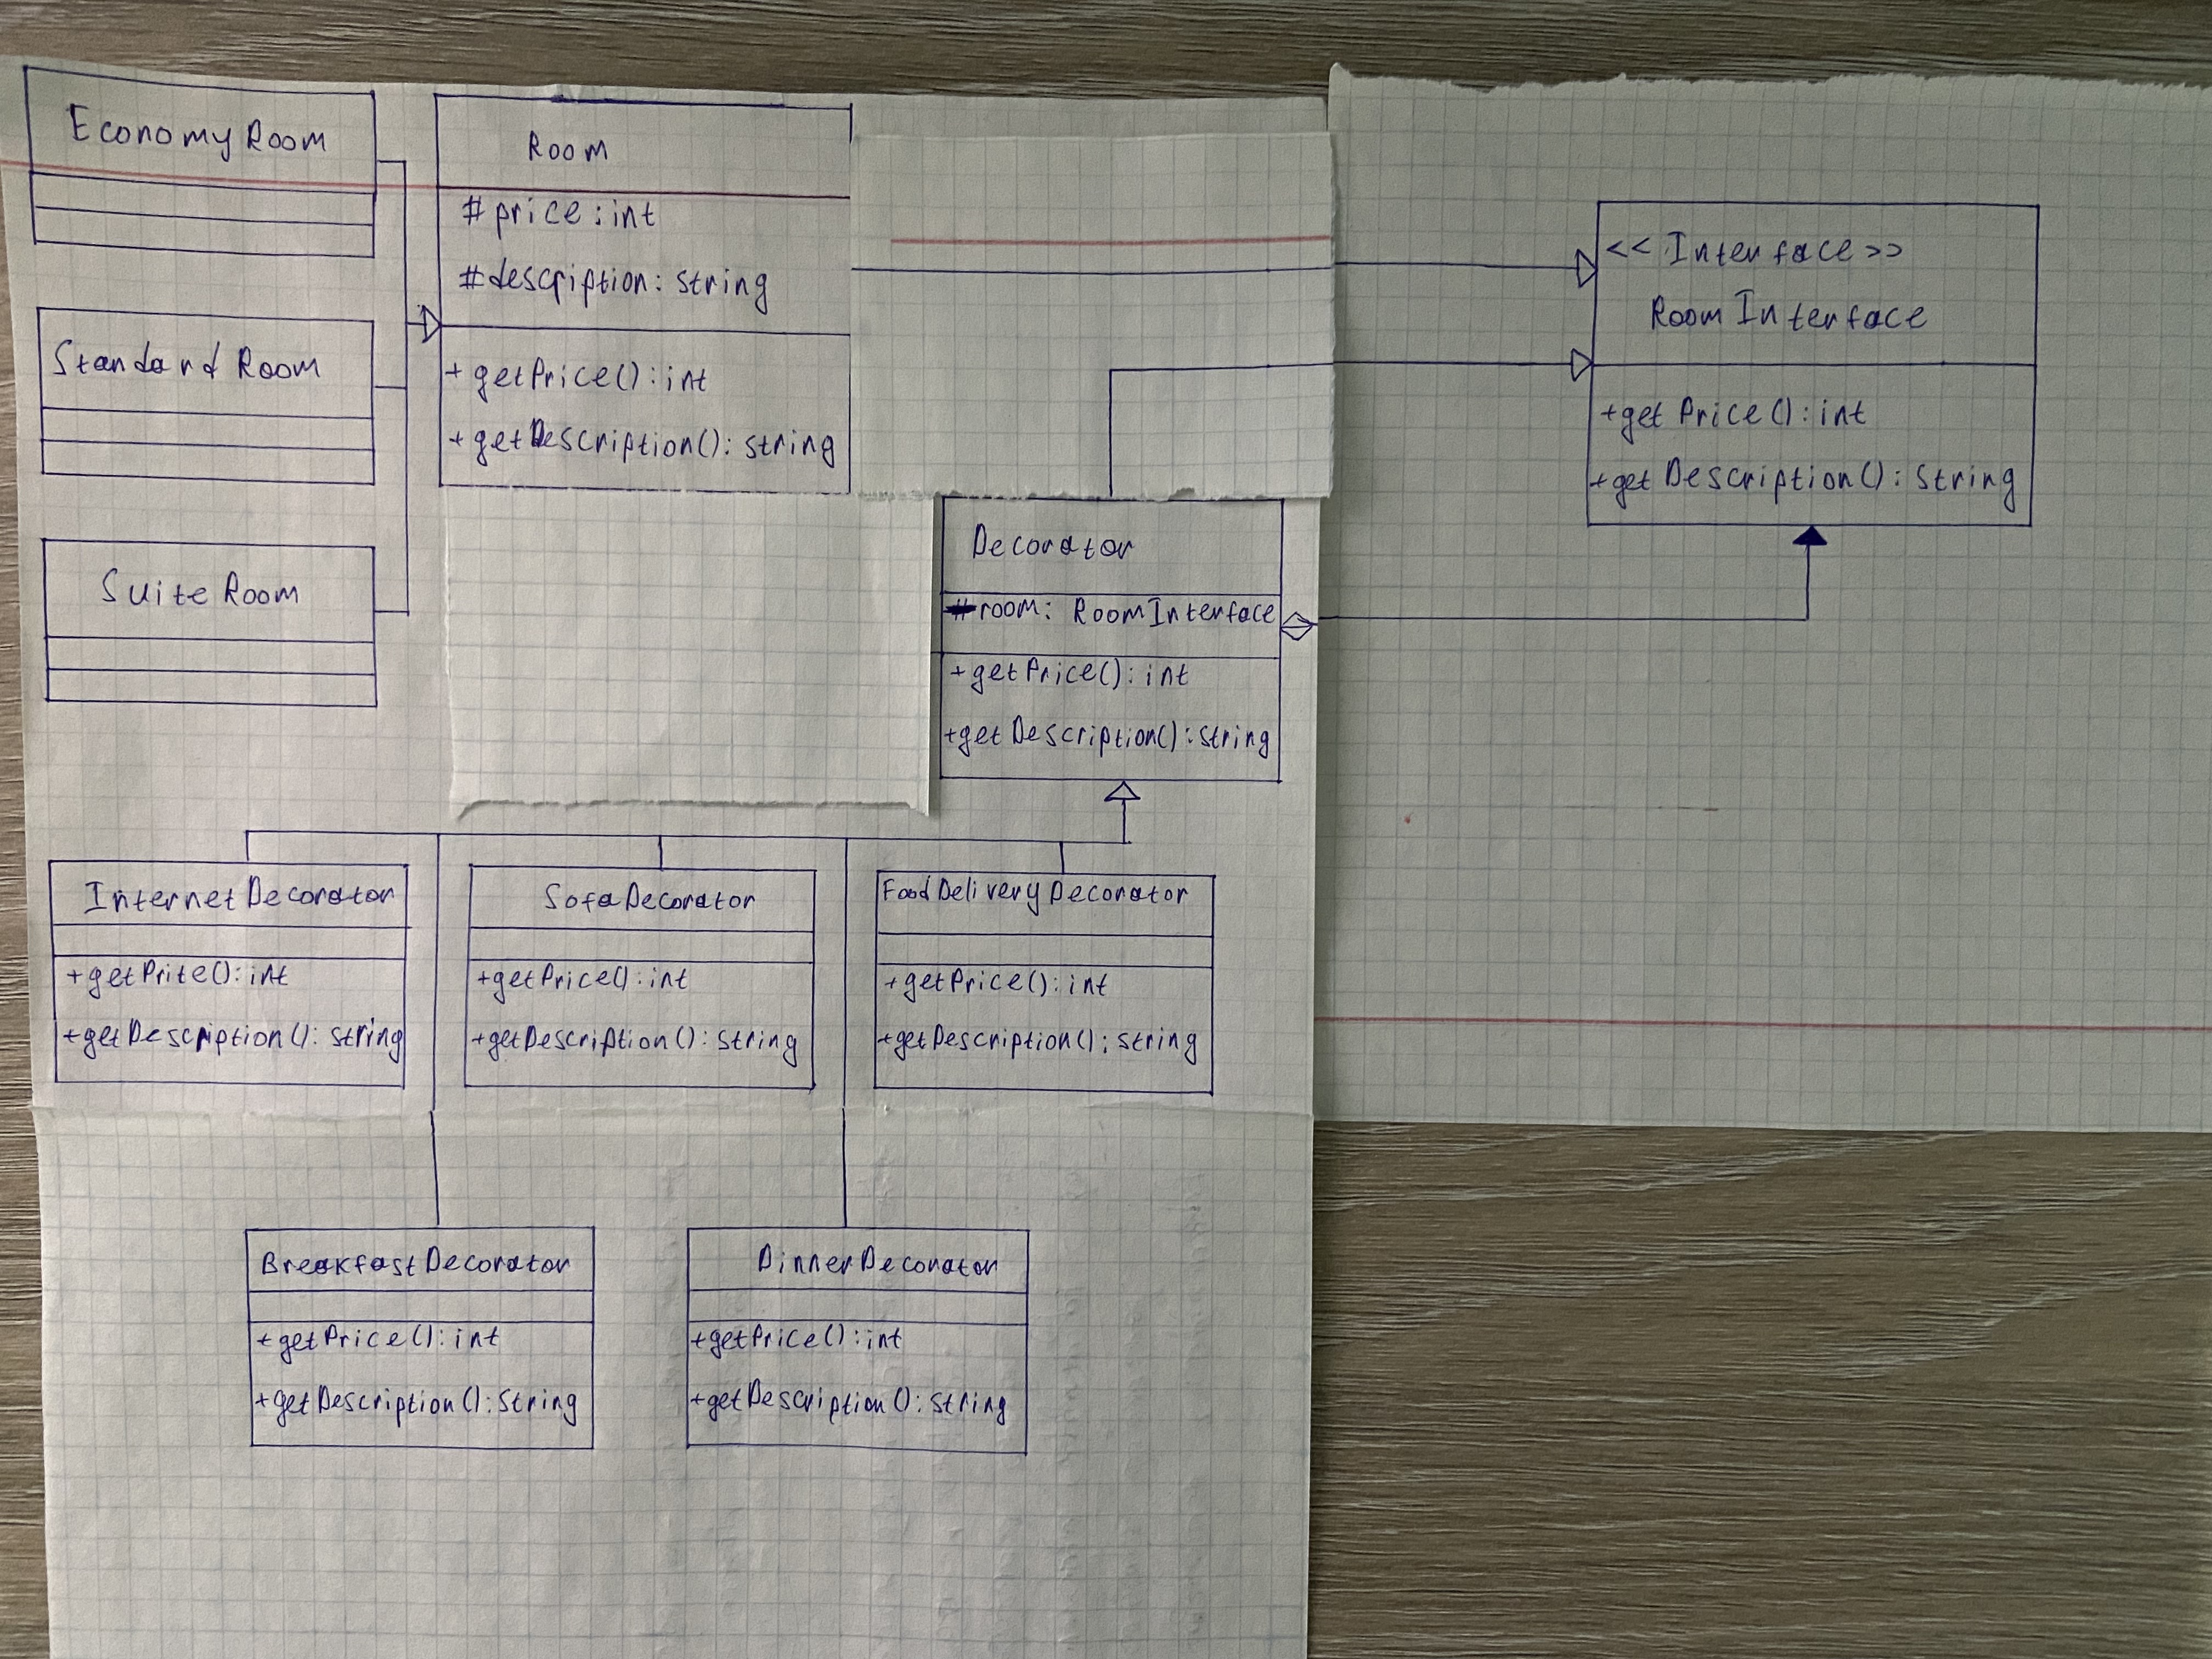 EconomyRoom
Room
#price:int
#description: string
+ getPrice(): int
+ getDescription(): string
Standard Room
Suite Room
<< Interface >>
RoomInterface
+getPrice(): int
+getDescription(): string
Decorator
#room: RoomInterface
+getPrice(): int
+getDescription(): string
InternetDecorator
+getPrice(): int
+getDescription(): string
SofaDecorator
+getPrice(): int
+getDescription(): string
FoodDeliveryDecorator
+getPrice(): int
+getDescription(): string
BreakfastDecorator
+getPrice(): int
+getDescription(): string
DinnerDecorator
+getPrice(): int
+getDescription(): string